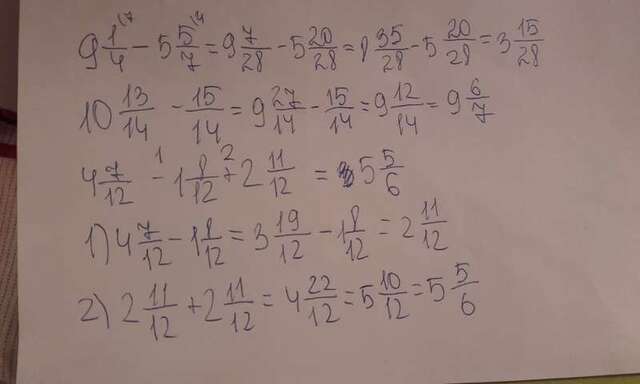 9 1/4 ¹⁷ - 5 5/7 ¹⁴ = 9 7/28 - 5 20/28 = 8 35/28 - 5 20/28 = 3 15/28
10 13/14 - 15/14 = 9 27/14 - 15/14 = 9 12/14 = 9 6/7
4 7/12 -¹ 1 8/12 +² 2 11/12 = 5 5/6
1) 4 7/12 - 1 8/12 = 3 19/12 - 1 8/12 = 2 11/12
2) 2 11/12 + 2 11/12 = 4 22/12 = 5 10/12 = 5 5/6